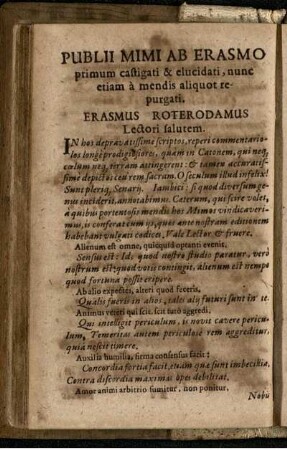 PUBLII MIMI AB ERASMO
primum castigati & elucidati, nunc
etiam à mendis aliquot re-
purgati.
ERASMUS ROTERODAMUS
Lectori salutem.
IN hos depravatissime scriptos, reperi commentario-
los longe prodigiosiores, quam in Catonem, qui neq́;
cœlum neq́; terram attingerent: & tamen accuratis-
sime depictos: ceu rem sacram. O seculum illud infelix!
Sunt pleriq́; Senarii, Iambici: si quod diversum ge-
nus inciderit, annotabimus. Cæterum, qui scire volet,
à quibus portentosis mendis hos Mimos vindicaveri-
mus, is conferat cum iis, quos ante nostram editionem
habebant vulgati codices. Vale Lector & fruere.
Alienum est omne, quicquid optanti evenit.
Sensus est: Id, quod nostro studio paratur, vero
nostrum est: quod votis contingit, alienum est nempe
quod fortuna posset eripere.
Ab alio expectes, alteri quod feceris.
Qualis fueris in alios, tales alij futuri sunt in te.
Animus vereri qui scit, scit tutò aggredi.
Qui intelligit periculum, is novit cavere pericu-
lum, Temeritas autem periculose rem aggreditur,
quia nescit timere.
Auxilia humilia, firma consensus facit:
Concordia fortia facit, etiam quæ sunt imbecilia,
Contra discordia maximas opes debilitat.
Amor animi arbitrio sumitur, non ponitur.